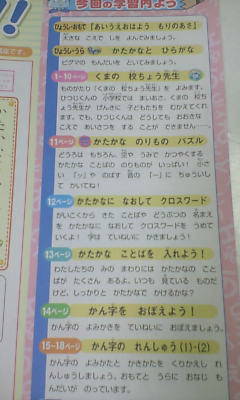 今回の学習内よう
ひょうし・おもて 「あいうえおはよう もりのあさ」
大きな こえで しを よんでみましょう。
ひょうし・うら かたかなと ひらがな
ピグマの もんだいを といてみましょう。
1~10ページ くまの 校ちょう先生
ものがたり「くまの 校ちょう先生」を 学しゅうし
ます。ひつじくんの 小学校では まいあさ、くまの 校ち
ょう先生が げんきに 子どもたちを むかえてくれ
ます。でも、ひつじくんは どうしても おおきな
こえで あいさつを する ことが できません…。
11ページ かたかな のりもの パズル
どうろは もちろん、空や うみで かつやくする
かたかな ことばの のりものが いっぱい! 小さ
い「ッ」や のばす 音の「ー」に ちゅういして
かいてね!
12ページ かたかなに なおして クロスワード
がいこくから きた ことばや どうぶつの 名まえ
を かたかなに なおして クロスワードを うめて
いくよ! 字は ていねいに かきましょう!
13ページ かたかな ことばを 入れよう!
わたしたちの みの まわりには かたかなの こと
ばが たくさん あるよ。いつも 見ている ものだ
けど、しっかりと かたかなで かけるかな?
14ページ かん字を おぼえよう!
かん字の よみかきを ていねいに おぼえましょう。
15~18ページ かん字の れんしゅう(1)・(2)
かん字の よみかたと かきかたを くりかえし れ
んしゅうしましょう。おもてと うらに おなじ も
んだいが のっています。